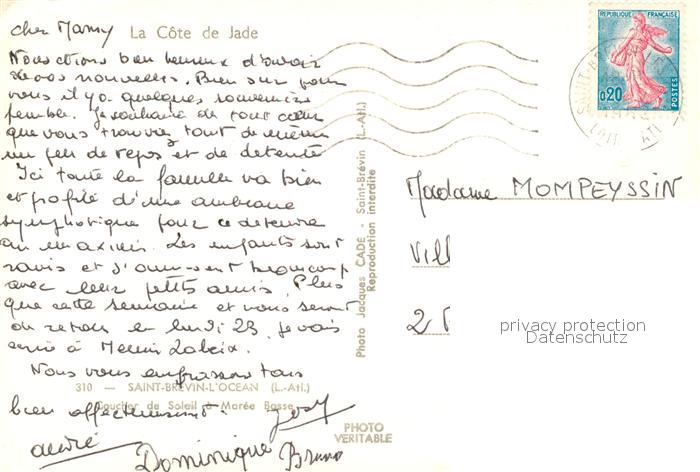 La Côte de Jade
cher Mamy
Nous étions bien heureux d'avoir
de vos nouvelles. Bien sur pour
vous il y a quelques souvenirs
penible. Je souhaite de tout cœur
que vous trouvrez tout de même
un peu de repos et de detente
Ici toute la famille va bien
et profite d'une ambiance
symphatique pour ce detendre
au maximum. Les enfants sont
ravis et s'amusent beaucoup
avec leur petits amis. Plus
que cette semaine et nous seront
de retour le lundi 23. je vais
écrire à
Nous vous embrassons tous
bien affectueusement. Josy
andré Dominique Bruno
310 — SAINT-BRÉVIN-L'OCEAN (L.-Atl.)
Coucher de Soleil à Marée Basse
Photo Jacques CADE - Saint-Brévin (L.-Atl.)
Reproduction interdite
PHOTO
VERITABLE
REPUBLIQUE FRANÇAISE
0,20
POSTES
Madame MOMPEYSSIN
Vill
2
privacy protection
Datenschutz